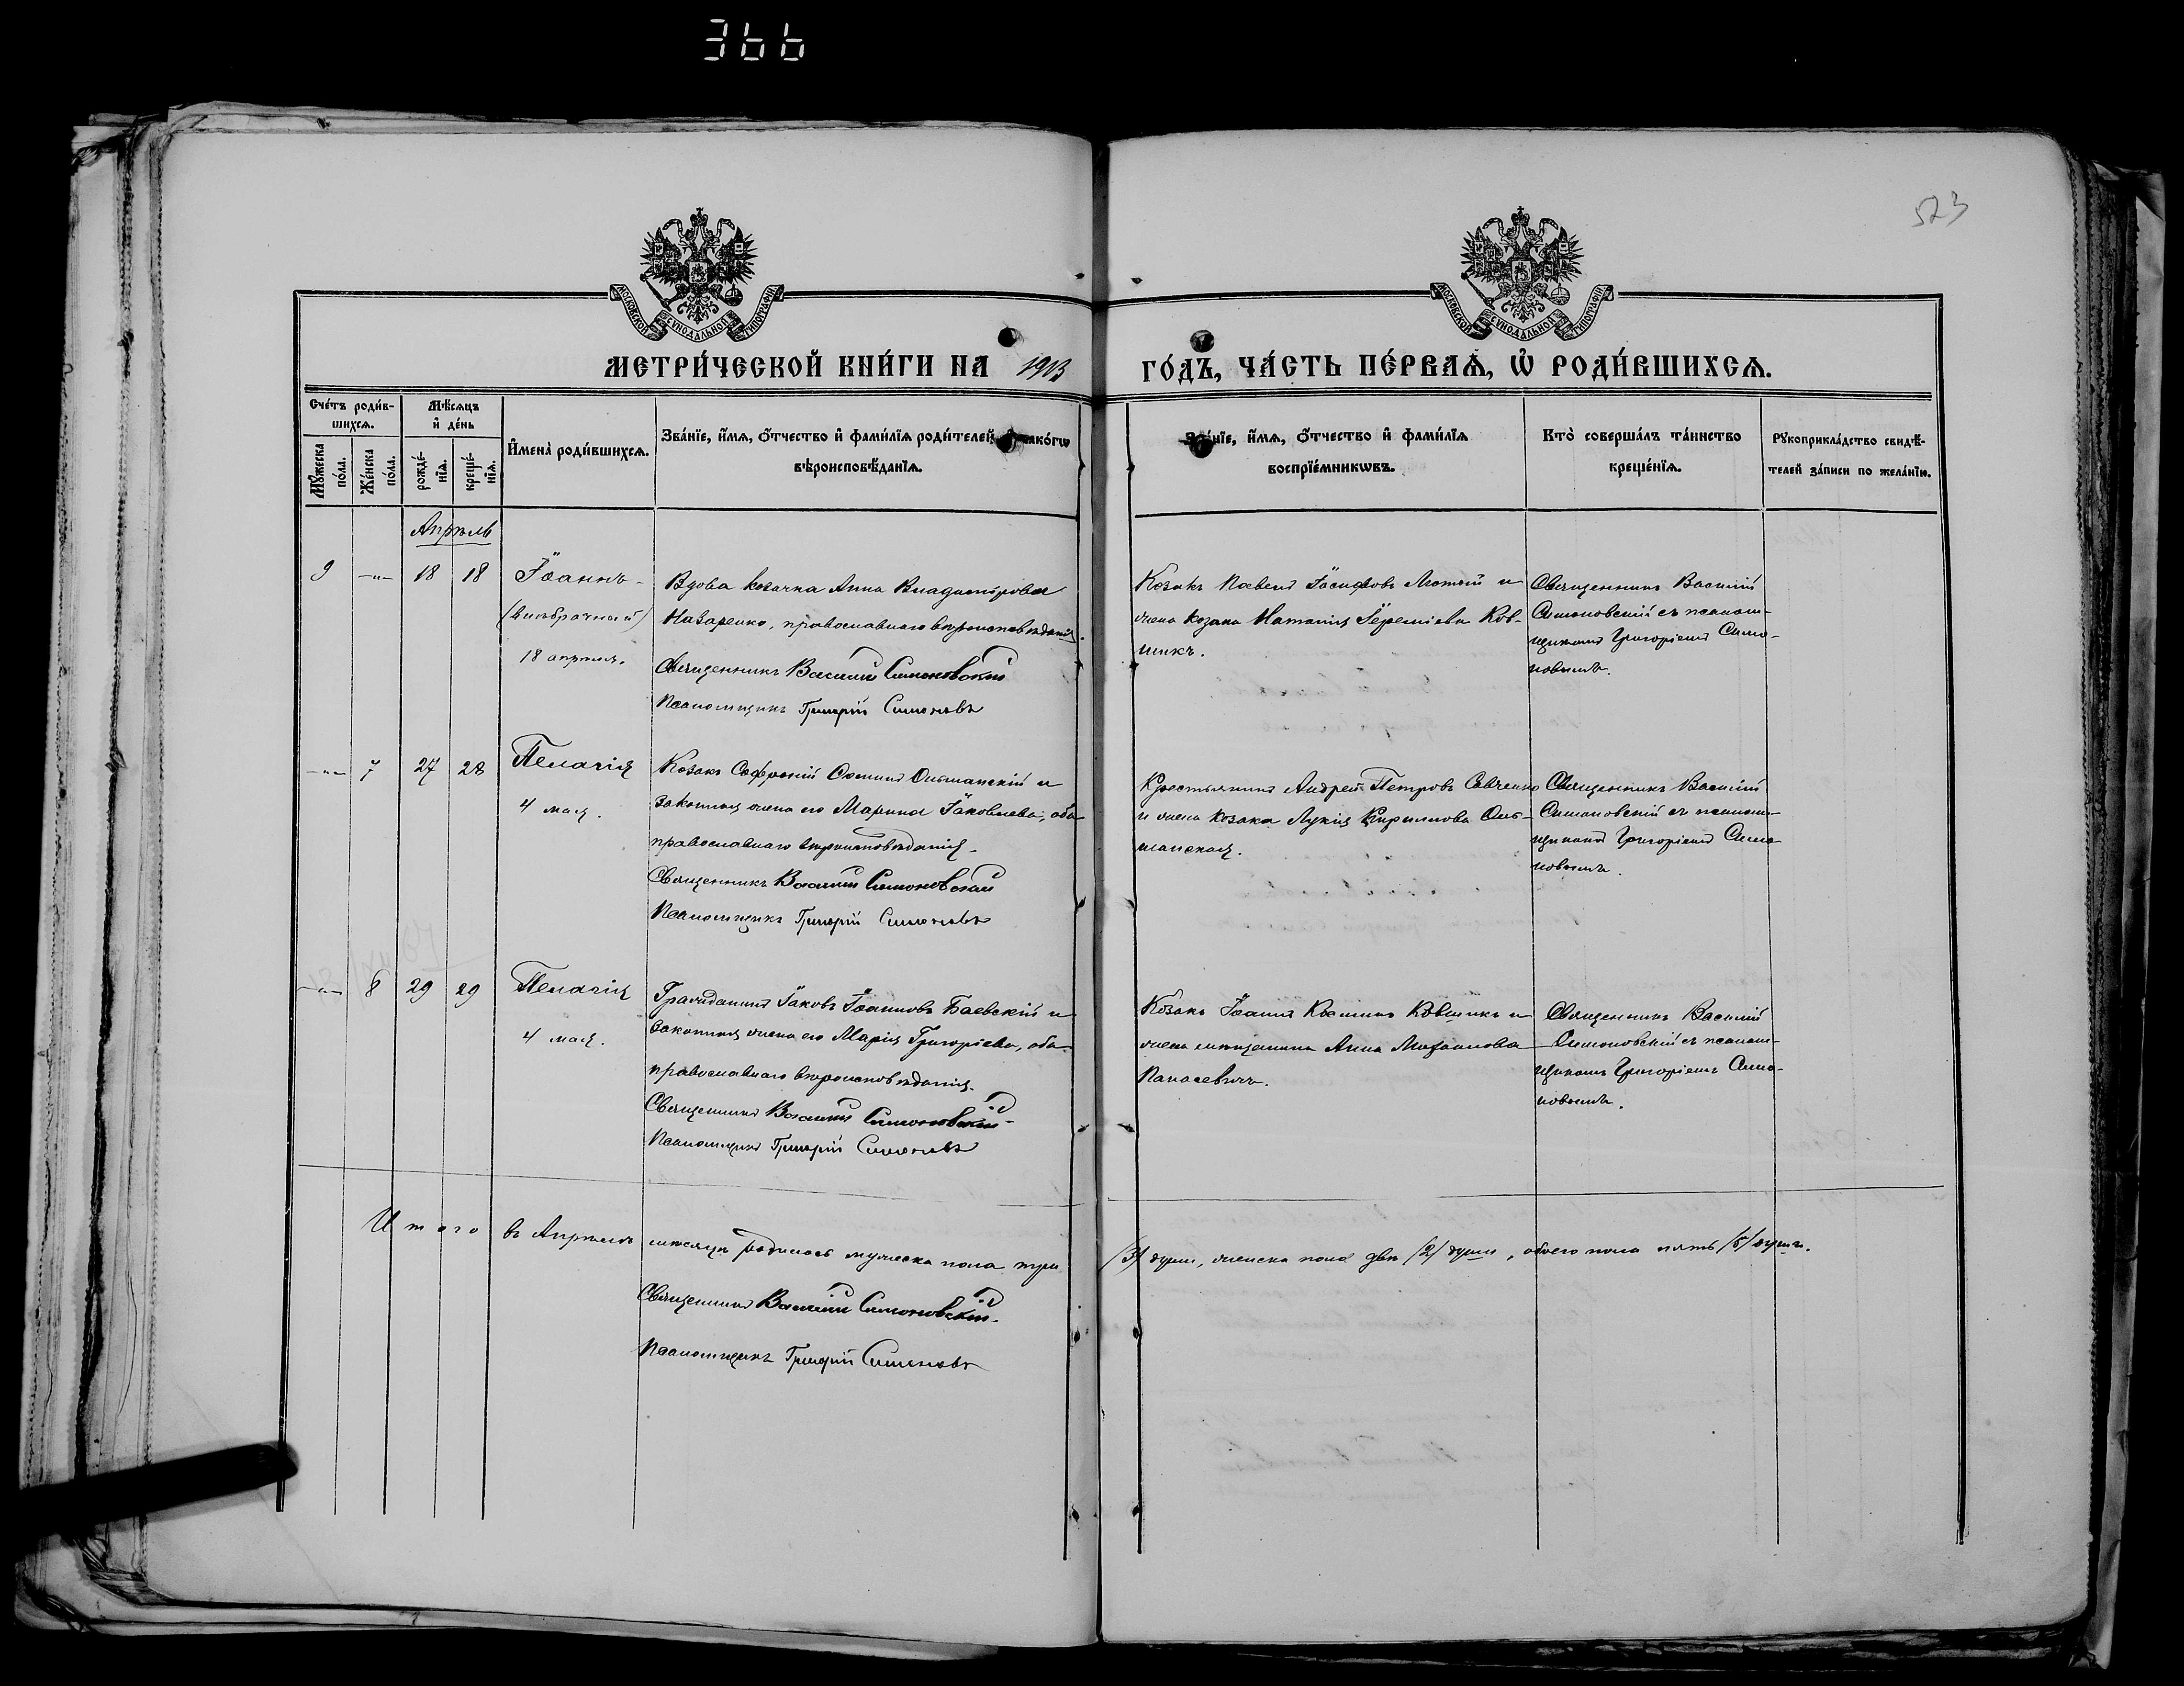 366
523
МОСКОВСКОЙ СѴНОДАЛЬНОЙ ТИПОГРАФІИ
МОСКОВСКОЙ СѴНОДАЛЬНОЙ ТИПОГРАФІИ
МЕТРИ́ЧЕСКОЙ КНИ́ГИ НА 1913 ГО́ДЪ, ЧА́СТЬ ПЕ́РВАѦ, Ѡ҆ РОДИ́ВШИХСѦ.
Сче́тъ роди́в-
шихсѧ.
Мꙋ́жеска по́ла.
Же́нска по́ла.
Мѣ́сѧцъ
и҆ де́нь
рожде́-
нїѧ.
креще́-
нїѧ.
И҆мена̀ роди́вшихсѧ.
Зва́нїе, и҆́мѧ, ѻ҆́тчество и҆ фами́лїѧ роди́телей
вѣроисповѣ́данїѧ.
и҆́мѧ, ѻ҆́тчество и҆ фами́лїѧ
воспрїе́мникѡвъ.
Кто̀ соверша́лъ та́инство
креще́нїѧ.
Рꙋкоприкла́дство свидѣ́-
телей за́писи по жела́нїю.
Апрѣль
9 -"- 18 18
Іоаннъ
(внѣбрачный)
18 апрѣля.
Вдова козачка Анна Владимірова
Назаренко, православнаго вѣроисповѣданія.
Священникъ Василій Симоновскій
Псаломщикъ Григорій Симоновъ
Козакъ Павелъ Іосифовъ Лютый и
жена козака Наталія Іереміева Ков-
шикъ.
Священникъ Василій
Симоновскій съ псалом-
щикомъ Григоріемъ Симо-
новымъ.
-"- 7 27 28
Пелагія
4 мая.
Козакъ Софроній Ольшанскій и
законная жена его Марина Іаковлева, оба
православнаго вѣроисповѣданія.
Священникъ Василій Симоновскій
Псаломщикъ Григорій Симоновъ
Крестьянинъ Андрей Петровъ Савченко
и жена козака Лукія Кириллова Оль-
шанская.
Священникъ Василій
Симоновскій съ псалом-
щикомъ Григоріемъ Симо-
новымъ.
-"- 8 29 29
Пелагія
4 мая.
Гражданинъ Іаковъ Іоанновъ Баевскій и
законная жена его Марія Григоріева, оба
православнаго вѣроисповѣданія.
Священникъ Василій Симоновскій
Псаломщикъ Григорій Симоновъ
Козакъ Іоаннъ Ковшикъ и
жена мѣщанина Анна Михаилова
Панасевичъ.
Священникъ Василій
Симоновскій съ псалом-
щикомъ Григоріемъ Симо-
новымъ.
Итого въ Апрѣлѣ мѣсяцѣ родилось мужеска пола три /3/ души, женска пола двѣ /2/ души, обоего пола пять /5/ душъ.
Священникъ Василій Симоновскій.
Псаломщикъ Григорій Симоновъ